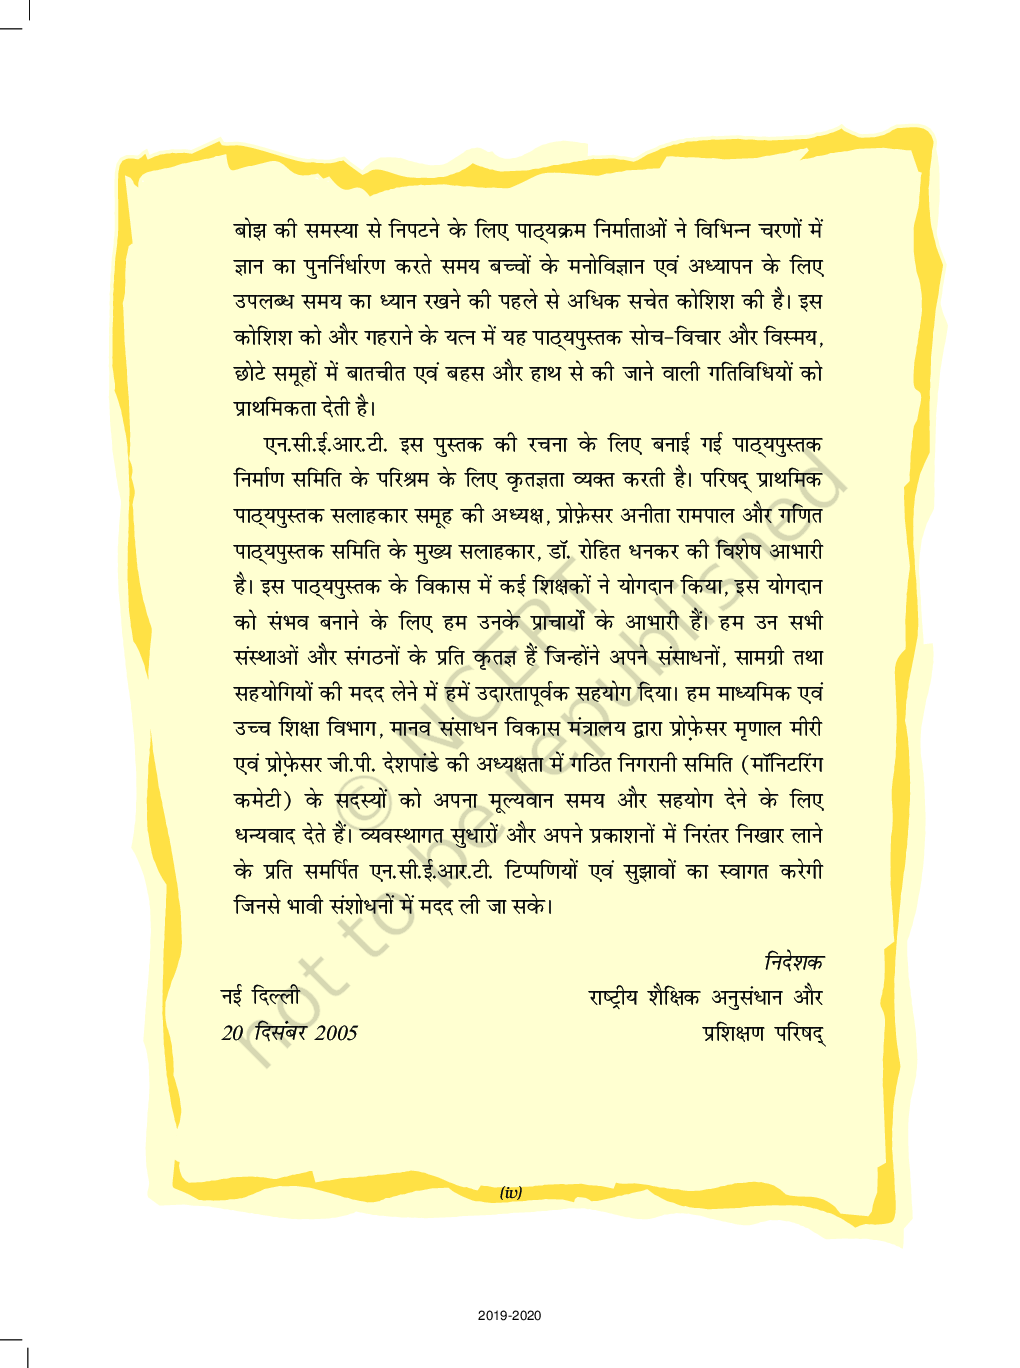 बोझ की समस्या से निपटने के लिए पाठ्यक्रम निर्माताओं ने विभिन्न चरणों में
ज्ञान का पुनर्निर्धारण करते समय बच्चों के मनोविज्ञान एवं अध्यापन के लिए
उपलब्ध समय का ध्यान रखने की पहले से अधिक सचेत कोशिश की है। इस
कोशिश को और गहराने के यत्न में यह पाठ्यपुस्तक सोच-विचार और विस्मय,
छोटे समूहों में बातचीत एवं बहस और हाथ से की जाने वाली गतिविधियों को
प्राथमिकता देती है।
एन.सी.ई.आर.टी. इस पुस्तक की रचना के लिए बनाई गई पाठ्यपुस्तक
निर्माण समिति के परिश्रम के लिए कृतज्ञता व्यक्त करती है। परिषद् प्राथमिक
पाठ्यपुस्तक सलाहकार समूह की अध्यक्ष, प्रोफ़ेसर अनीता रामपाल और गणित
पाठ्यपुस्तक समिति के मुख्य सलाहकार, डॉ. रोहित धनकर की विशेष आभारी
है। इस पाठ्यपुस्तक के विकास में कई शिक्षकों ने योगदान किया, इस योगदान
को संभव बनाने के लिए हम उनके प्राचार्यों के आभारी हैं। हम उन सभी
संस्थाओं और संगठनों के प्रति कृतज्ञ हैं जिन्होंने अपने संसाधनों, सामग्री तथा
सहयोगियों की मदद लेने में हमें उदारतापूर्वक सहयोग दिया। हम माध्यमिक एवं
उच्च शिक्षा विभाग, मानव संसाधन विकास मंत्रालय द्वारा प्रोफ़ेसर मृणाल मीरी
एवं प्रोफ़ेसर जी.पी. देशपांडे की अध्यक्षता में गठित निगरानी समिति (मॉनिटरिंग
कमेटी) के सदस्यों को अपना मूल्यवान समय और सहयोग देने के लिए
धन्यवाद देते हैं। व्यवस्थागत सुधारों और अपने प्रकाशनों में निरंतर निखार लाने
के प्रति समर्पित एन.सी.ई.आर.टी. टिप्पणियों एवं सुझावों का स्वागत करेगी
जिनसे भावी संशोधनों में मदद ली जा सके।
निदेशक
नई दिल्ली राष्ट्रीय शैक्षिक अनुसंधान और
20 दिसंबर 2005 प्रशिक्षण परिषद्
© NCERT
not to be republished
(iv)
2019-2020